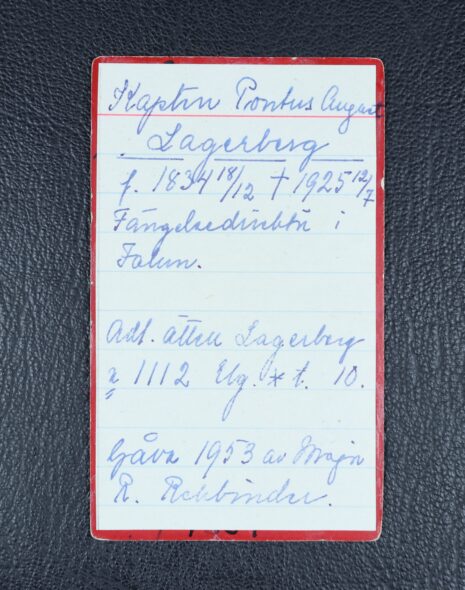 Kaptin Pontus August
Lagerberg
f. 1834 18/12 † 1925 12/7
Fängelsedirektör i
Falun.
Adl. ätten Lagerberg
n 1112 Elg. * t. 10.
Gåva 1953 av Major
R. Rehbinder.